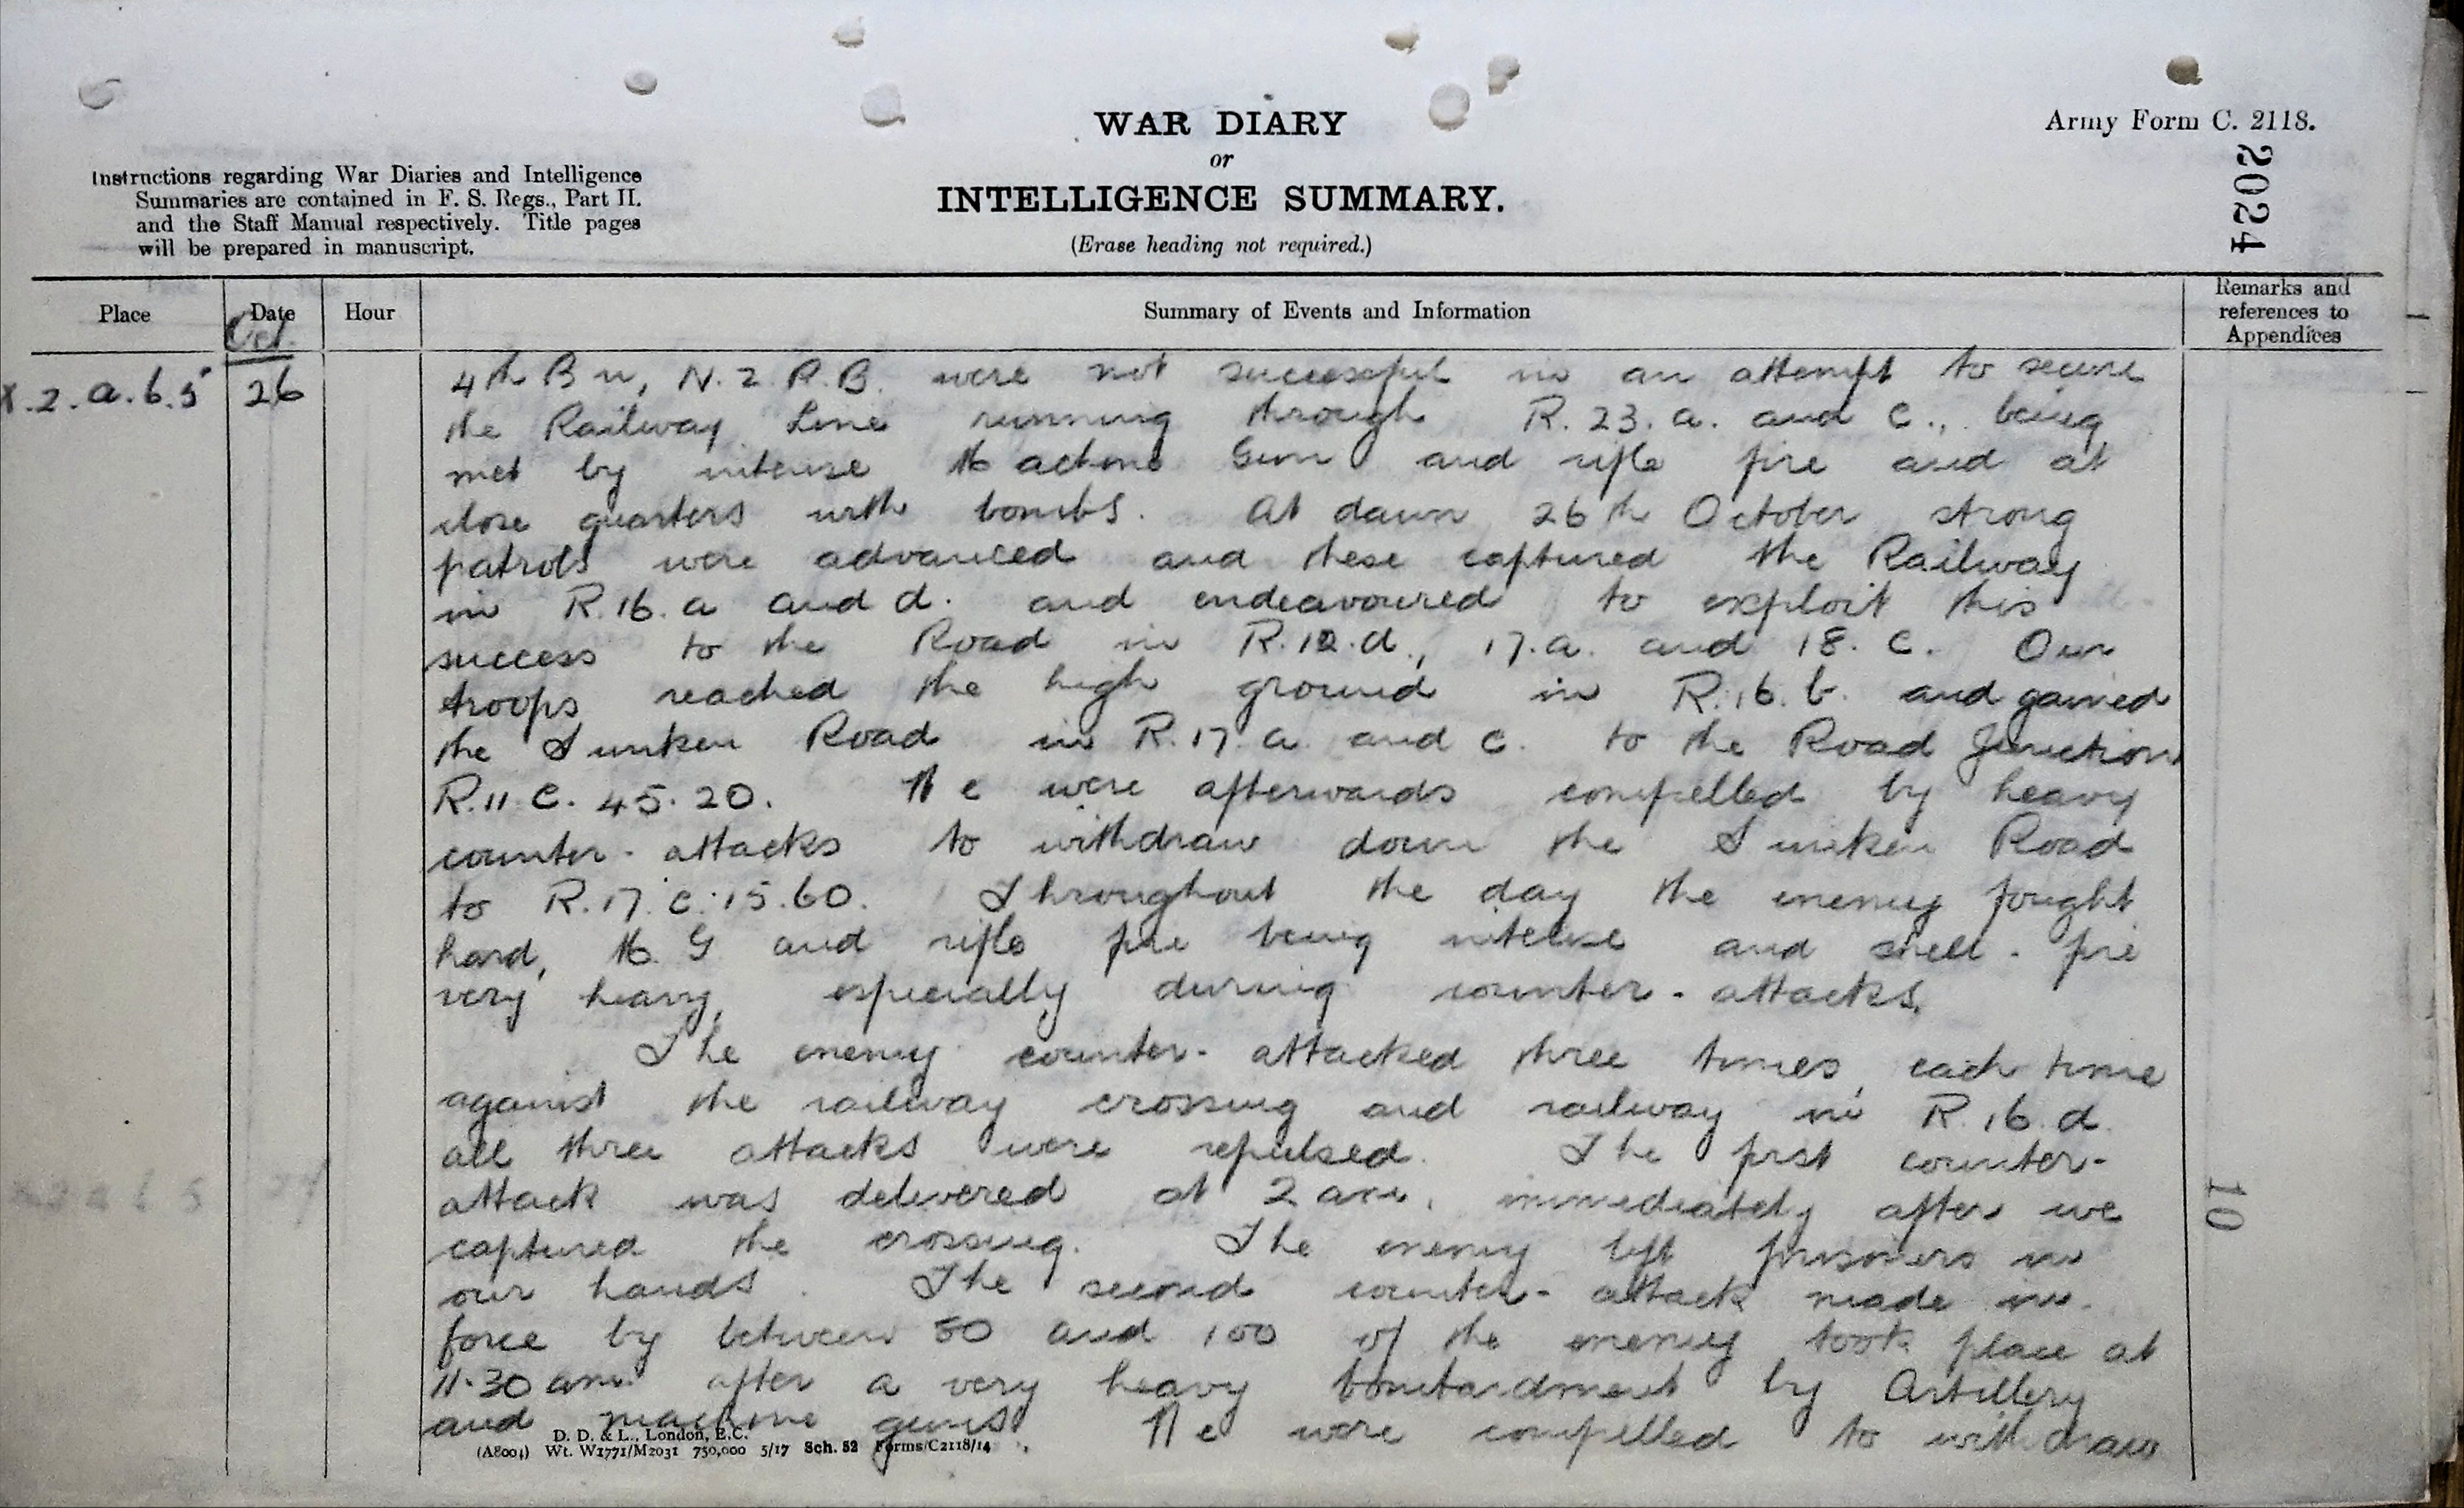 WAR DIARY
or
INTELLIGENCE SUMMARY.
(Erase heading not required.)
Army Form C. 2118.
2024
Instructions regarding War Diaries and Intelligence
Summaries are contained in F. S. Regs., Part II.
and the Staff Manual respectively. Title pages
will be prepared in manuscript.
Place
Date
Hour
Summary of Events and Information
Remarks and
references to
Appendices
Oct.
X.2.a.6.5
26
4th Bn, N.Z.R.B. were not successful in an attempt to secure
the Railway Line running through R.23.a. and c., being
met by intense Machine Gun and rifle fire and at
close quarters with bombs. At dawn 26th October strong
patrols were advanced and these captured the Railway
in R.16.a and d. and endeavoured to exploit this
success to the Road in R.12.d., 17.a. and 18.c. Our
troops reached the high ground in R.16.b. and gained
the Sunken Road in R.17.a and c. to the Road Junction
R.11.C.45.20. We were afterwards compelled by heavy
counter-attacks to withdraw down the Sunken Road
to R.17.c.15.60. Throughout the day the enemy fought
hard, M.G and rifle fire being intense and shell-fire
very heavy, especially during counter-attacks.
The enemy counter-attacked three times, each time
against the railway crossing and railway in R.16.d.
all three attacks were repulsed. The first counter-
attack was delivered at 2 am. immediately after we
captured the crossing. The enemy left prisoners in
our hands. The second counter-attack made in
force by between 80 and 100 of the enemy took place at
11.30 am. after a very heavy bombardment by Artillery
and machine guns. We were compelled to withdraw
10
D. D. & L., London, E.C.
(A8004) Wt. W1771/M2031 750,000 5/17 Sch. 52 Forms/C2118/14